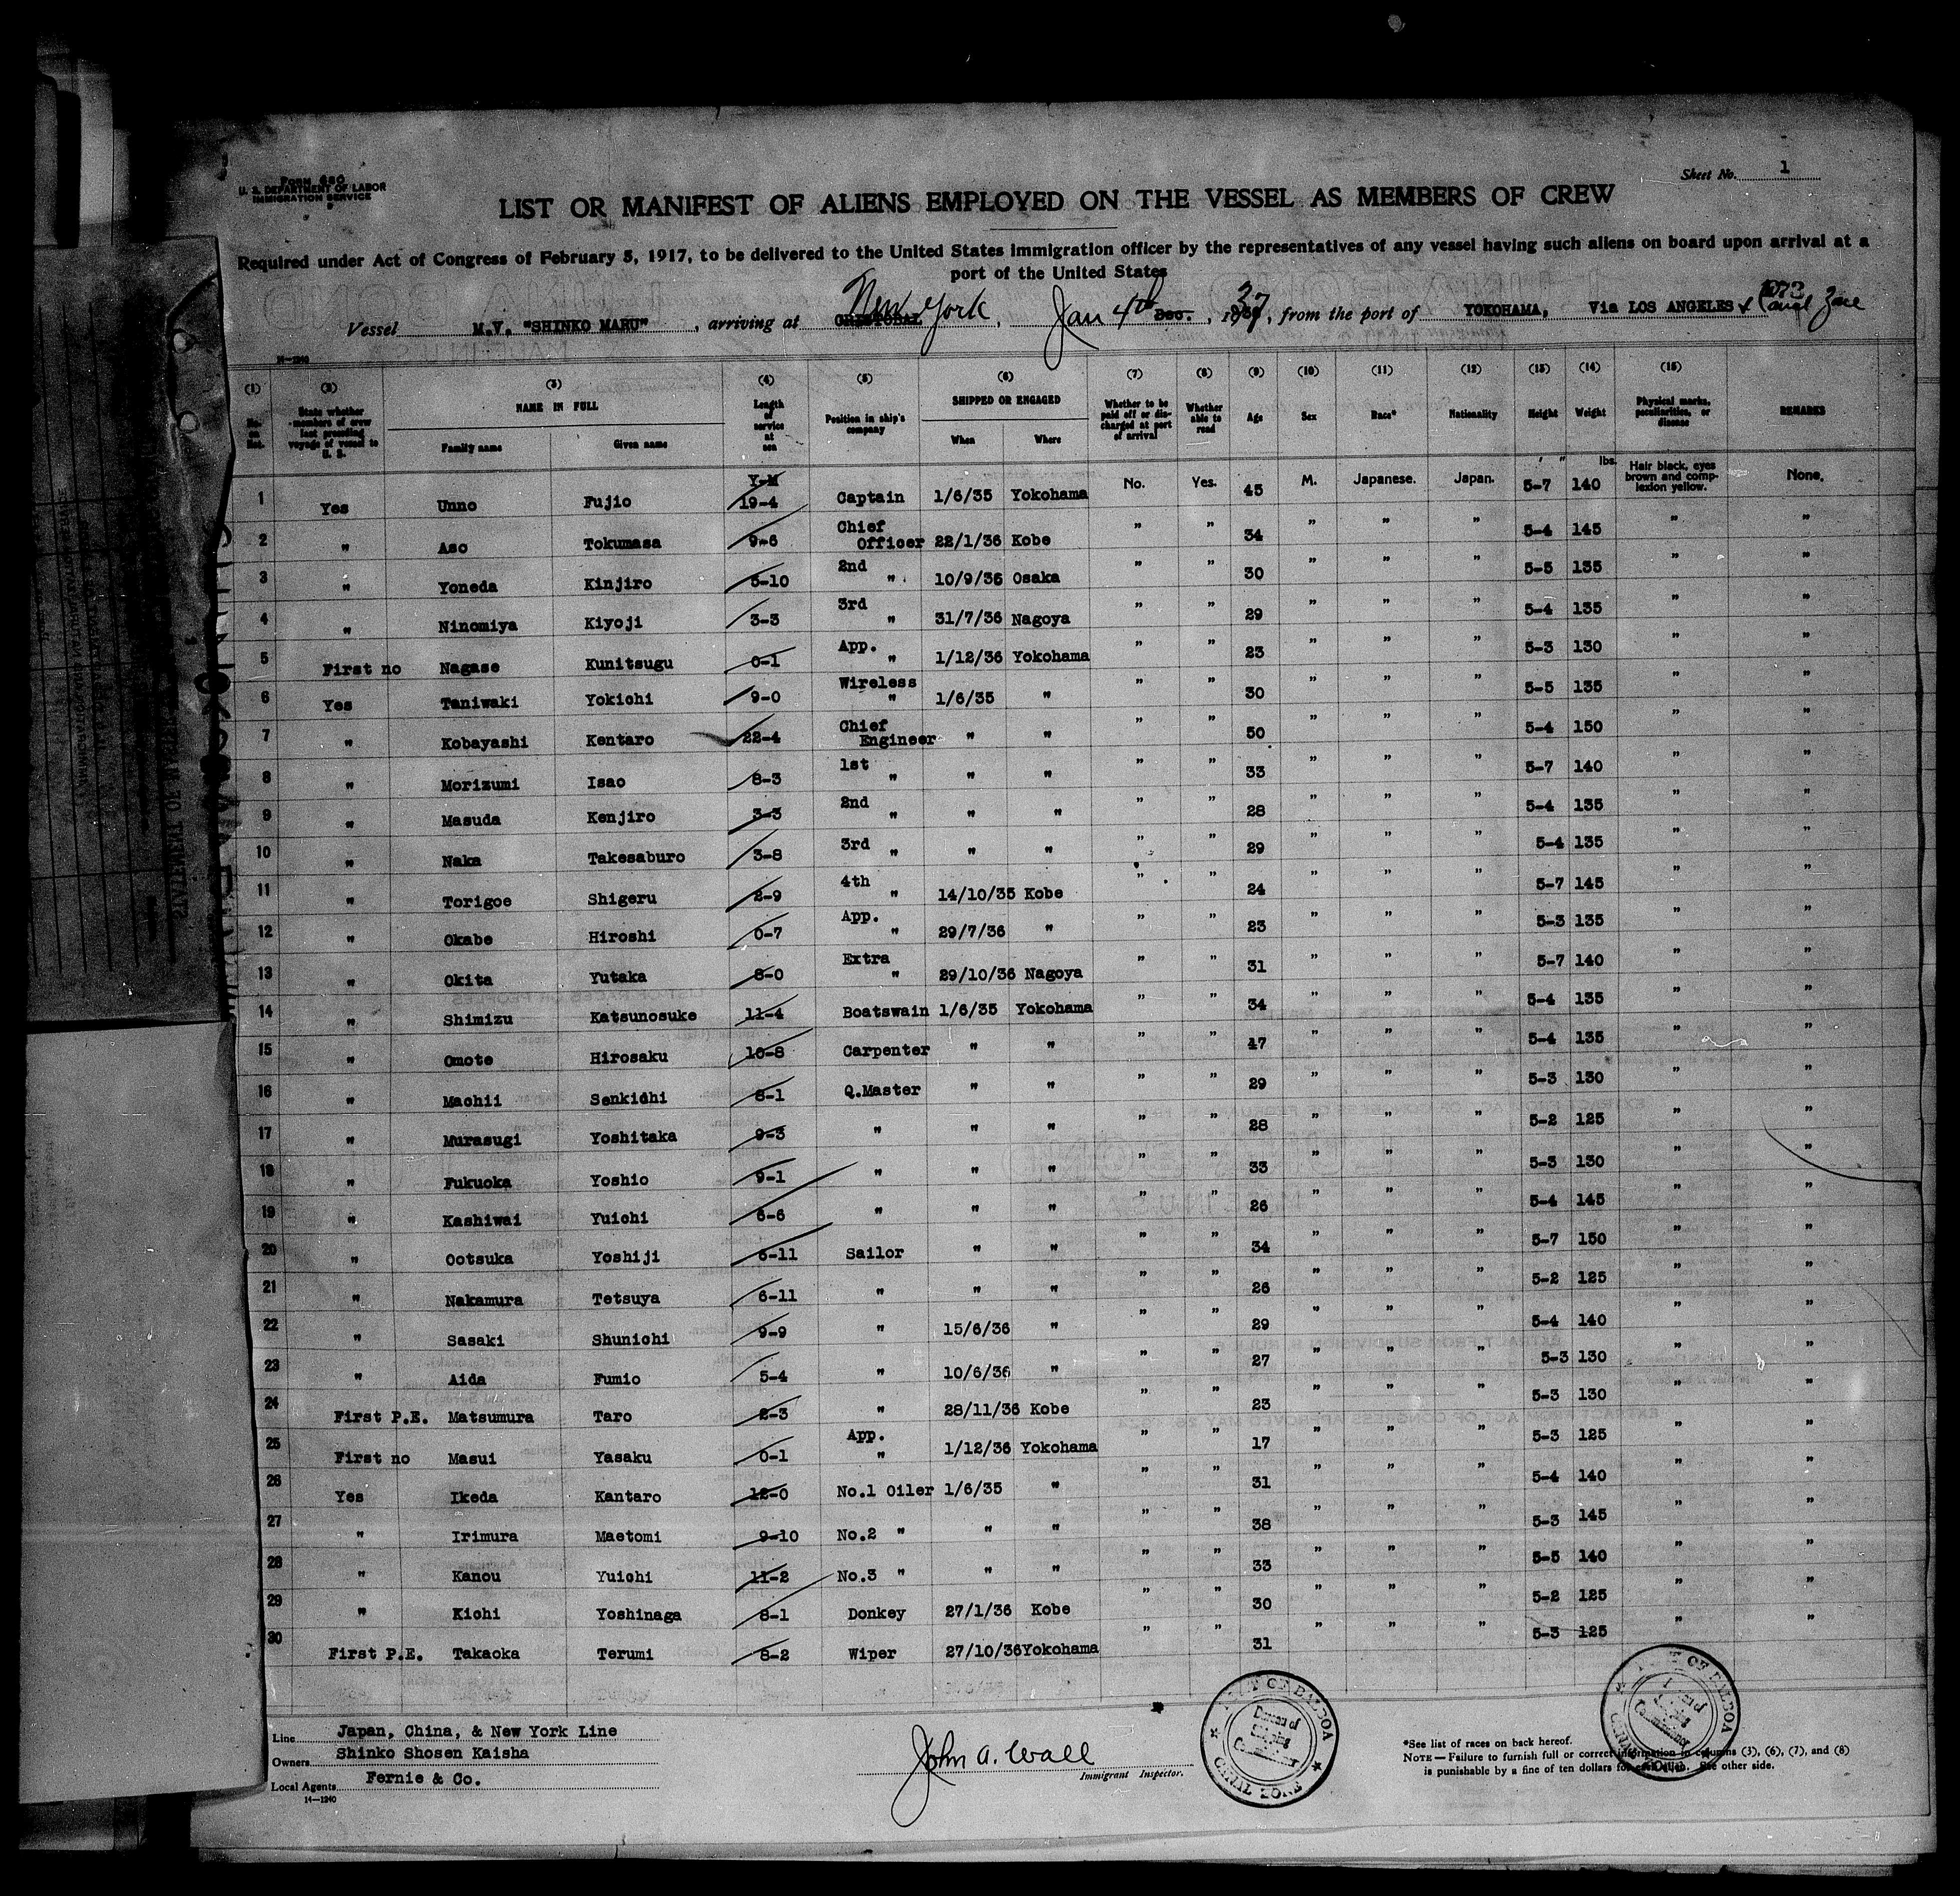 Form 680
U. S. DEPARTMENT OF LABOR
IMMIGRATION SERVICE
Sheet No. 1
LIST OR MANIFEST OF ALIENS EMPLOYED ON THE VESSEL AS MEMBERS OF CREW
Required under Act of Congress of February 5, 1917, to be delivered to the United States immigration officer by the representatives of any vessel having such aliens on board upon arrival at a
port of the United States
Vessel M.V. "SHINKO MARU", arriving at CRISTOBAL New York, Jan 4th Dec., 1937, from the port of YOKOHAMA, Via LOS ANGELES & Canal Zone
14—1240
(1) (2) (3) (4) (5) (6) (7) (8) (9) (10) (11) (12) (13) (14) (15)
No. on list. State whether members of crew last preceding voyage of vessel to U. S. NAME IN FULL Family name Given name Length of service at sea Position in ship's company SHIPPED OR ENGAGED When Where Whether to be paid off or discharged at port of arrival Whether able to read Age Sex Race* Nationality Height Weight Physical marks, peculiarities, or disease REMARKS
Y-M ' " lbs.
1 Yes Unno Fujio 19-4 Captain 1/6/35 Yokohama No. Yes. 45 M. Japanese. Japan. 5-7 140 Hair black, eyes brown and complexion yellow. None.
2 " Aso Tokumasa 9-6 Chief Officer 22/1/36 Kobe " " 34 " " " 5-4 145 " "
3 " Yoneda Kinjiro 5-10 2nd " 10/9/36 Osaka " " 30 " " " 5-5 135 " "
4 " Ninomiya Kiyoji 3-3 3rd " 31/7/36 Nagoya " " 29 " " " 5-4 135 " "
5 First no Nagase Kunitsugu 0-1 App. " 1/12/36 Yokohama " " 23 " " " 5-3 130 " "
6 Yes Taniwaki Yokichi 9-0 Wireless " 1/6/35 " " " 30 " " " 5-5 135 " "
7 " Kobayashi Kentaro 22-4 Chief Engineer " " " " 50 " " " 5-4 150 " "
8 " Morizumi Isao 8-3 1st " " " " " 33 " " " 5-7 140 " "
9 " Masuda Kenjiro 3-3 2nd " " " " " 28 " " " 5-4 135 " "
10 " Naka Takesaburo 3-8 3rd " " " " " 29 " " " 5-4 135 " "
11 " Torigoe Shigeru 2-9 4th " 14/10/35 Kobe " " 24 " " " 5-7 145 " "
12 " Okabe Hiroshi 0-7 App. " 29/7/36 " " " 23 " " " 5-3 135 " "
13 " Okita Yutaka 8-0 Extra " 29/10/36 Nagoya " " 31 " " " 5-7 140 " "
14 " Shimizu Katsunosuke 11-4 Boatswain 1/6/35 Yokohama " " 34 " " " 5-4 135 " "
15 " Omote Hirosaku 10-8 Carpenter " " " " 47 " " " 5-4 135 " "
16 " Machii Senkidhi 8-1 Q.Master " " " " 29 " " " 5-3 130 " "
17 " Murasugi Yoshitaka 9-3 " " " " " 28 " " " 5-2 125 " "
18 " Fukuoka Yoshio 9-1 " " " " " 33 " " " 5-3 130 " "
19 " Kashiwai Yuichi 6-6 " " " " " 26 " " " 5-4 145 " "
20 " Ootsuka Yoshiji 6-11 Sailor " " " " 34 " " " 5-7 150 " "
21 " Nakamura Tetsuya 6-11 " " " " " 26 " " " 5-2 125 " "
22 " Sasaki Shunichi 9-9 " 15/6/36 " " " 29 " " " 5-4 140 " "
23 " Aida Fumio 5-4 " 10/6/36 " " " 27 " " " 5-3 130 " "
24 First P.E. Matsumura Taro 2-3 " 28/11/36 Kobe " " 23 " " " 5-3 130 " "
25 First no Masui Yasaku 0-1 App. " 1/12/36 Yokohama " " 17 " " " 5-3 125 " "
26 Yes Ikeda Kantaro 12-0 No.1 Oiler 1/6/35 " " " 31 " " " 5-4 140 " "
27 " Irimura Maetomi 9-10 No.2 " " " " " 38 " " " 5-3 145 " "
28 " Kanou Yuichi 11-2 No.3 " " " " " 33 " " " 5-5 140 " "
29 " Kichi Yoshinaga 8-1 Donkey 27/1/36 Kobe " " 30 " " " 5-2 125 " "
30 First P.E. Takaoka Terumi 8-2 Wiper 27/10/36 Yokohama " " 31 " " " 5-3 125 " "
Line Japan, China, & New York Line
Owners Shinko Shosen Kaisha
Local Agents Fernie & Co.
14—1240
John A. Wall
Immigrant Inspector.
PORT OF BALBOA
CANAL ZONE
*See list of races on back hereof.
NOTE—Failure to furnish full or correct information in columns (3), (6), (7), and (8)
is punishable by a fine of ten dollars for each alien. See other side.
PORT OF BALBOA
CANAL ZONE